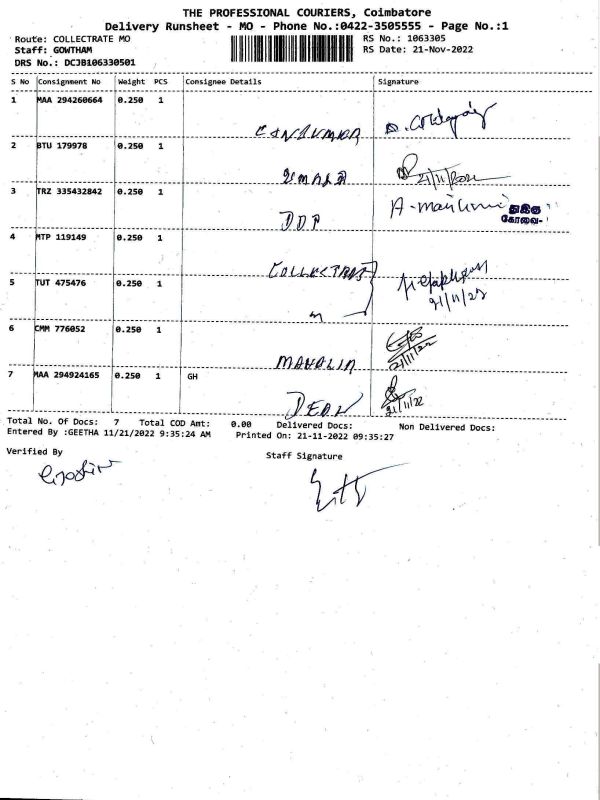 THE PROFESSIONAL COURIERS, Coimbatore
Delivery Runsheet - MO - Phone No.:0422-3505555 - Page No.:1
Route: COLLECTRATE MO RS No.: 1063305
Staff: GOWTHAM RS Date: 21-Nov-2022
DRS No.: DCJB106330501
S No Consignment No Weight PCS Consignee Details Signature
1 MAA 294260664 0.250 1
2 BTU 179978 0.250 1
21/11/2022
3 TRZ 335432842 0.250 1
DDP
4 MTP 119149 0.250 1
5 TUT 475476 0.250 1
21/11/22
6 CMM 776052 0.250 1
21/11/22
7 MAA 294924165 0.250 1 GH
DEAN 21/11/22
Total No. Of Docs: 7 Total COD Amt: 0.00 Delivered Docs: Non Delivered Docs:
Entered By :GEETHA 11/21/2022 9:35:24 AM Printed On: 21-11-2022 09:35:27
Verified By Staff Signature